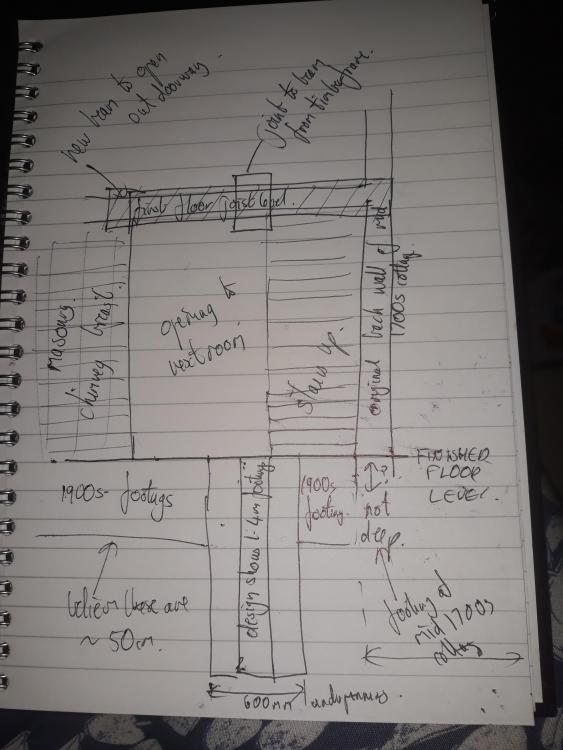 New beam to open
out doorway.
joint to beam
from timber frame.
first floor joist level.
masonry.
chimney breast.
opening to
next room
stairs up.
original back wall of mid
1700s cottage
FINISHED
FLOOR
LEVEL.
1900s footings
believe these are
~ 50cm.
design shows 1.4m footing
1900s
footing.
?
not
deep.
footing of
mid 1700s
600mm underpinning.